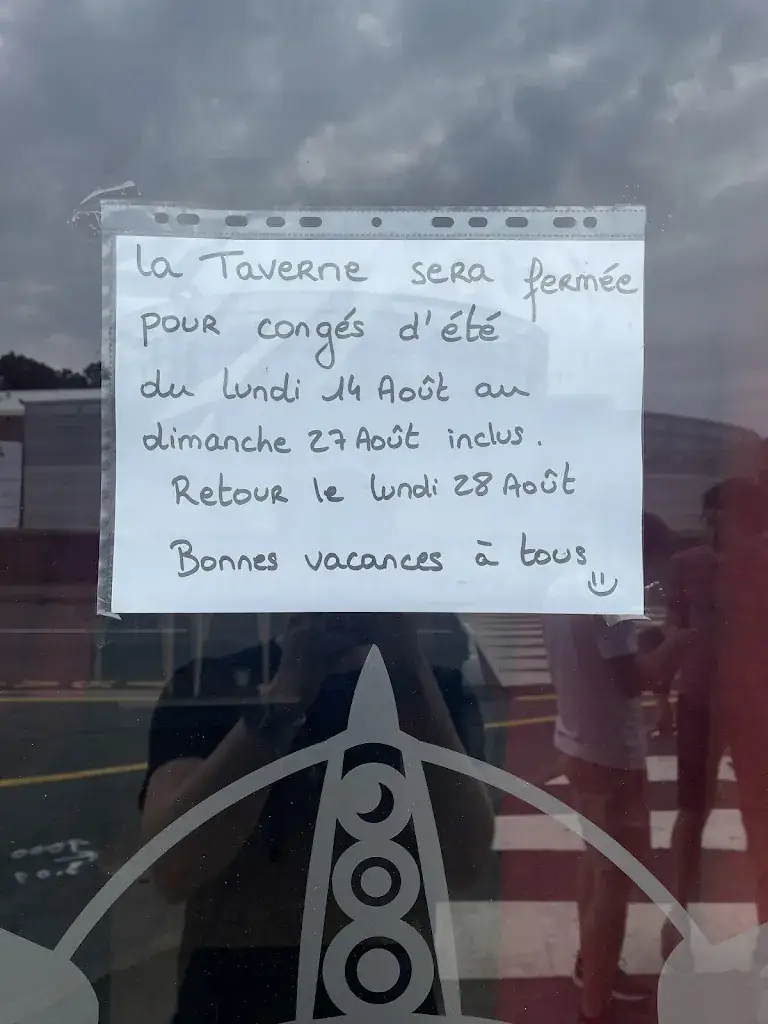 La Taverne sera fermée
pour congés d'été
du lundi 14 Août au
dimanche 27 Août inclus.
Retour le lundi 28 Août
Bonnes vacances à tous